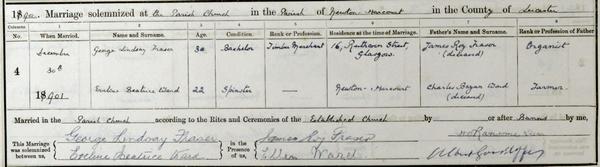 1890. Marriage solemnized at the Parish Church in the Parish of Newton-Harcourt in the County of Leicester
Columns 1 2 3 4 5 6 7 8
No. When Married. Name and Surname. Age. Condition. Rank or Profession. Residence at the time of Marriage. Father's Name and Surname. Rank or Profession of Father
4 December 30th 18901 George Lindsay Fraser 30 Bachelor Timber Merchant 16, Ruthven Street, Glasgow. James Roy Fraser (deceased) Organist
Eveline Beatrice Ward 22 Spinster —— Newton-Harcourt Charles Bryan Ward (deceased) Farmer
Married in the Parish Church according to the Rites and Ceremonies of the Established Church or after Banns by me,
This Marriage was solemnized between us, George Lindsay Fraser Eveline Beatrice Ward in the Presence of us, James Roy Fraser Ellen Ward